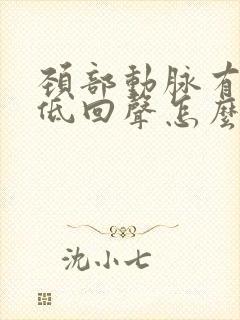 頚部動脉有
低回聲怎麼
沈小七